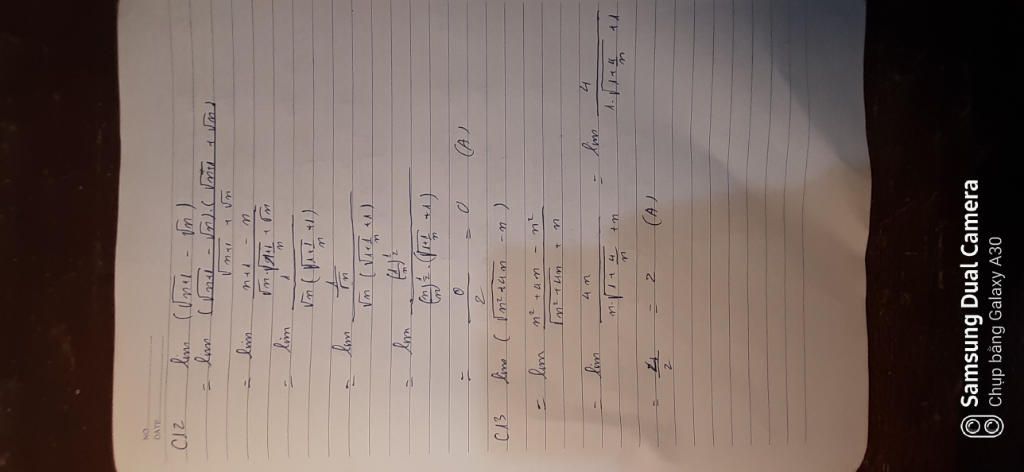 NO.
DATE
C12 lim (√(n+1) - √n)
= lim ((√(n+1) - √n).(√(n+1) + √n))/(√(n+1) + √n)
= lim (n+1 - n)/(√n.√(1+1/n) + √n)
= lim 1/(√n(√(1+1/n) +1))
= lim (1/√n)/(√n(√(1+1/n) +1))
= lim (1/n)^(1/2)/((n/n)^(1/2).(√(1+1/n) +1))
= 0/2 = 0 (A)
C13 lim (√(n²+4n) - n)
= lim (n²+4n - n²)/(√(n²+4n) + n)
= lim 4n/(n.√(1+4/n) +n) = lim 4/(1.√(1+4/n) +1)
= 4/2 = 2 (A)
Samsung Dual Camera
Chụp bằng Galaxy A30